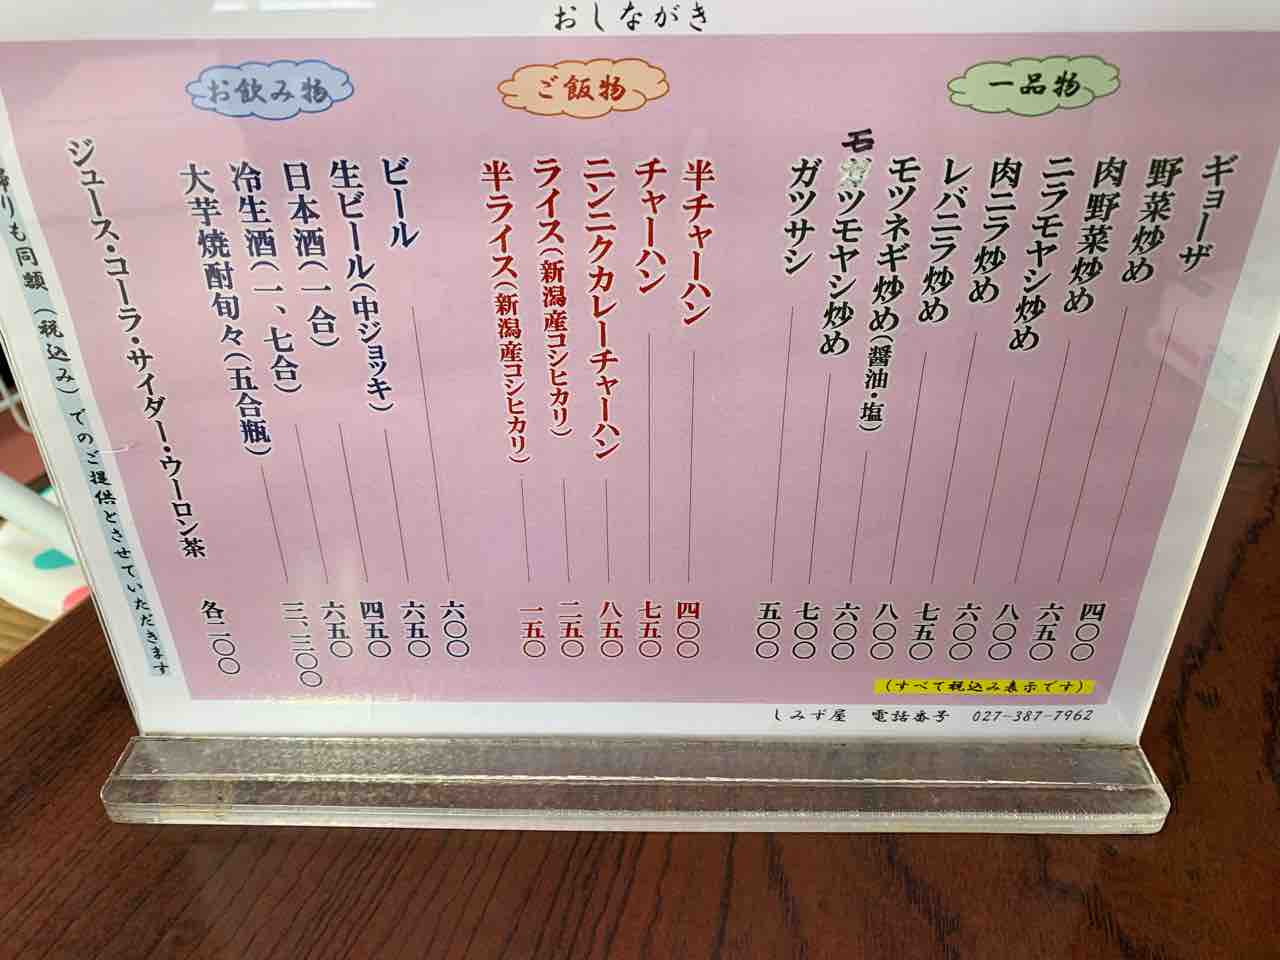 おしながき
一品物
ギョーザ 四〇〇
野菜炒め 六五〇
肉野菜炒め 八〇〇
ニラモヤシ炒め 六〇〇
肉ニラ炒め 七五〇
レバニラ炒め 八〇〇
モツネギ炒め(醤油・塩) 六〇〇
モツモヤシ炒め 七〇〇
ガツサシ 五〇〇
ご飯物
半チャーハン 四〇〇
チャーハン 七五〇
ニンニクカレーチャーハン 八五〇
ライス(新潟産コシヒカリ) 二五〇
半ライス(新潟産コシヒカリ) 一五〇
お飲み物
ビール 六〇〇
生ビール(中ジョッキ) 六五〇
日本酒(一合) 四五〇
冷生酒(一、七合) 六五〇
大芋焼酎旬々(五合瓶) 三、三〇〇
ジュース・コーラ・サイダー・ウーロン茶 各二〇〇
帰りも同額(税込み)でのご提供とさせていただきます
(すべて税込み表示です)
しみず屋 電話番号 027-387-7962